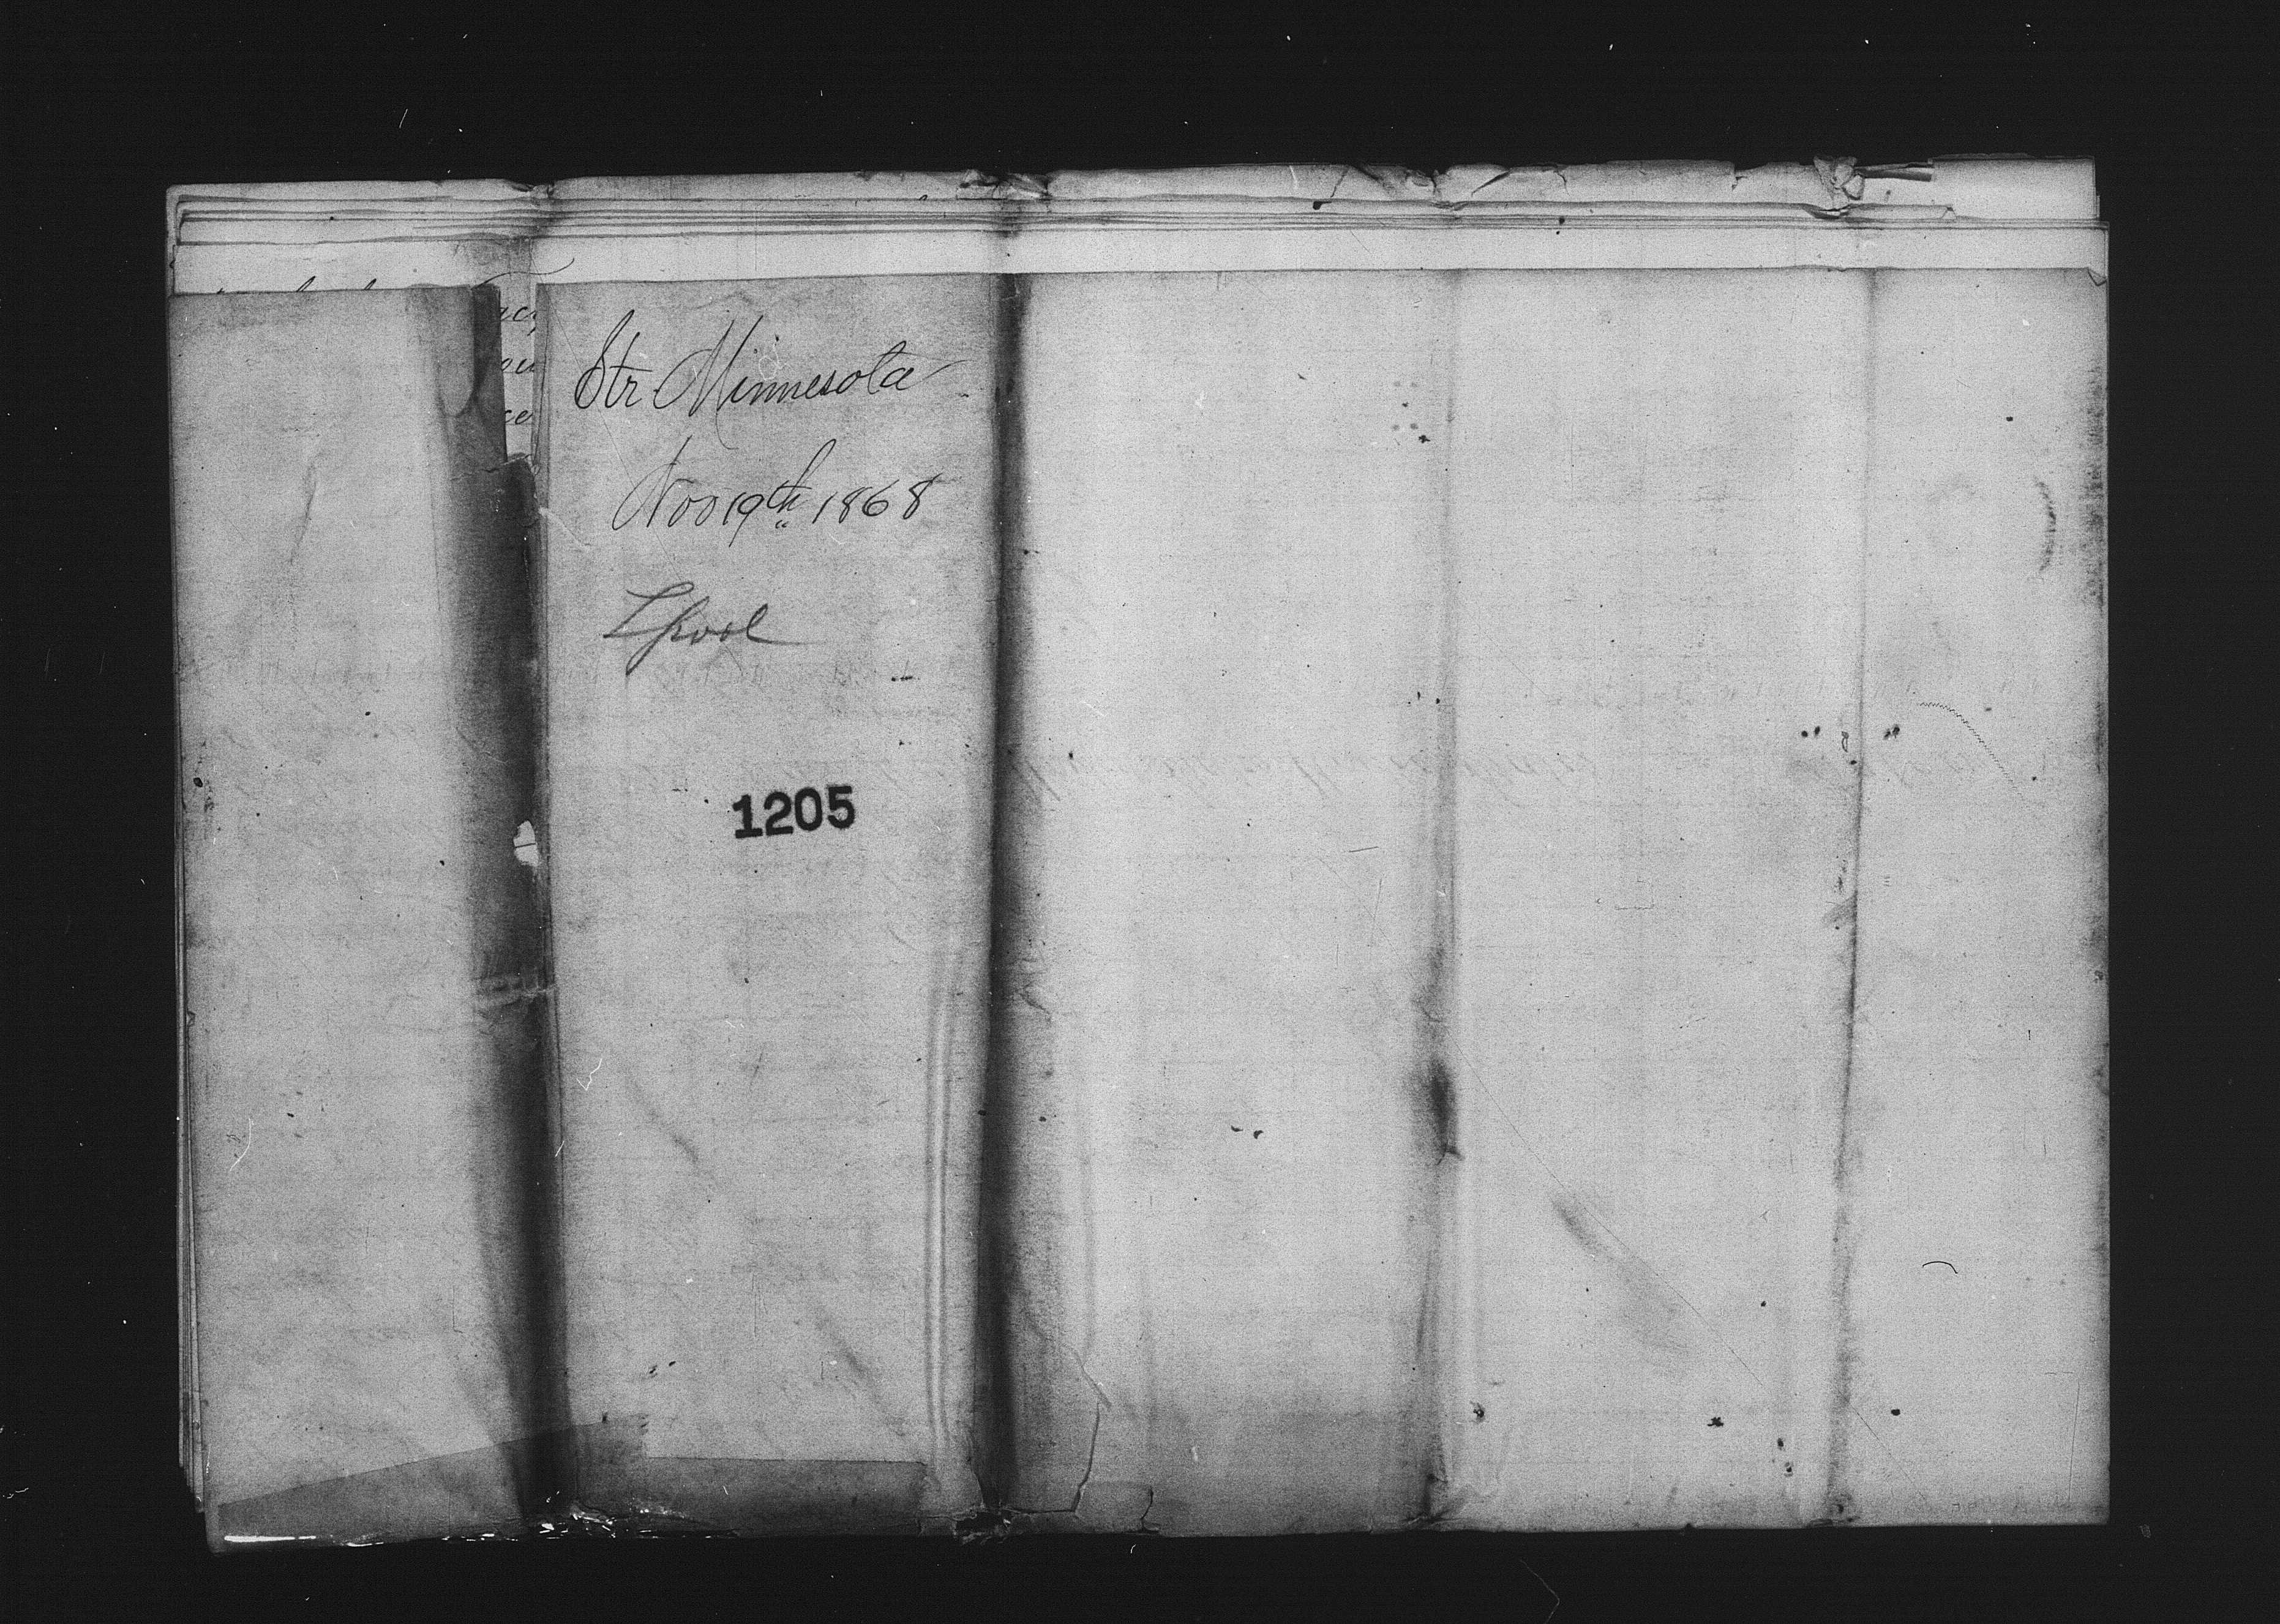 Str Minnesota
Nov 19th 1868
Lpool
1205